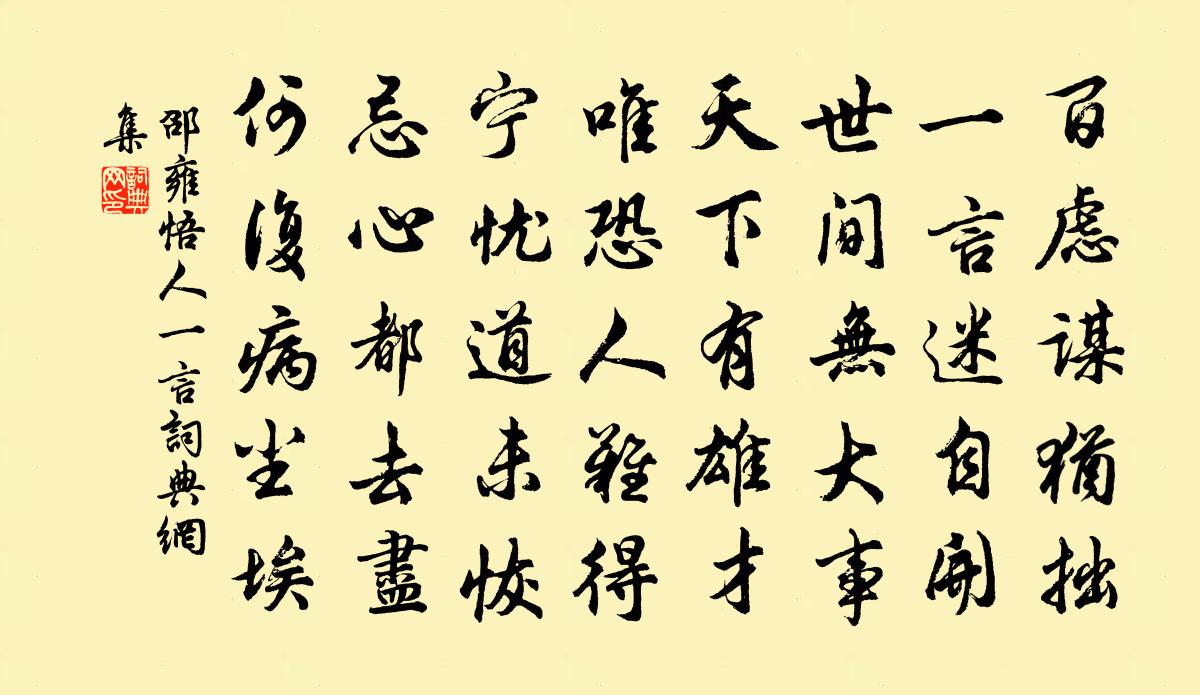 百慮謀猶拙
一言迷自開
世間無大事
天下有雄才
唯恐人難得
宁忧道未恢
忌心都去盡
何復病尘埃
邵雍悟人一言詞典網
集
詞典
网印